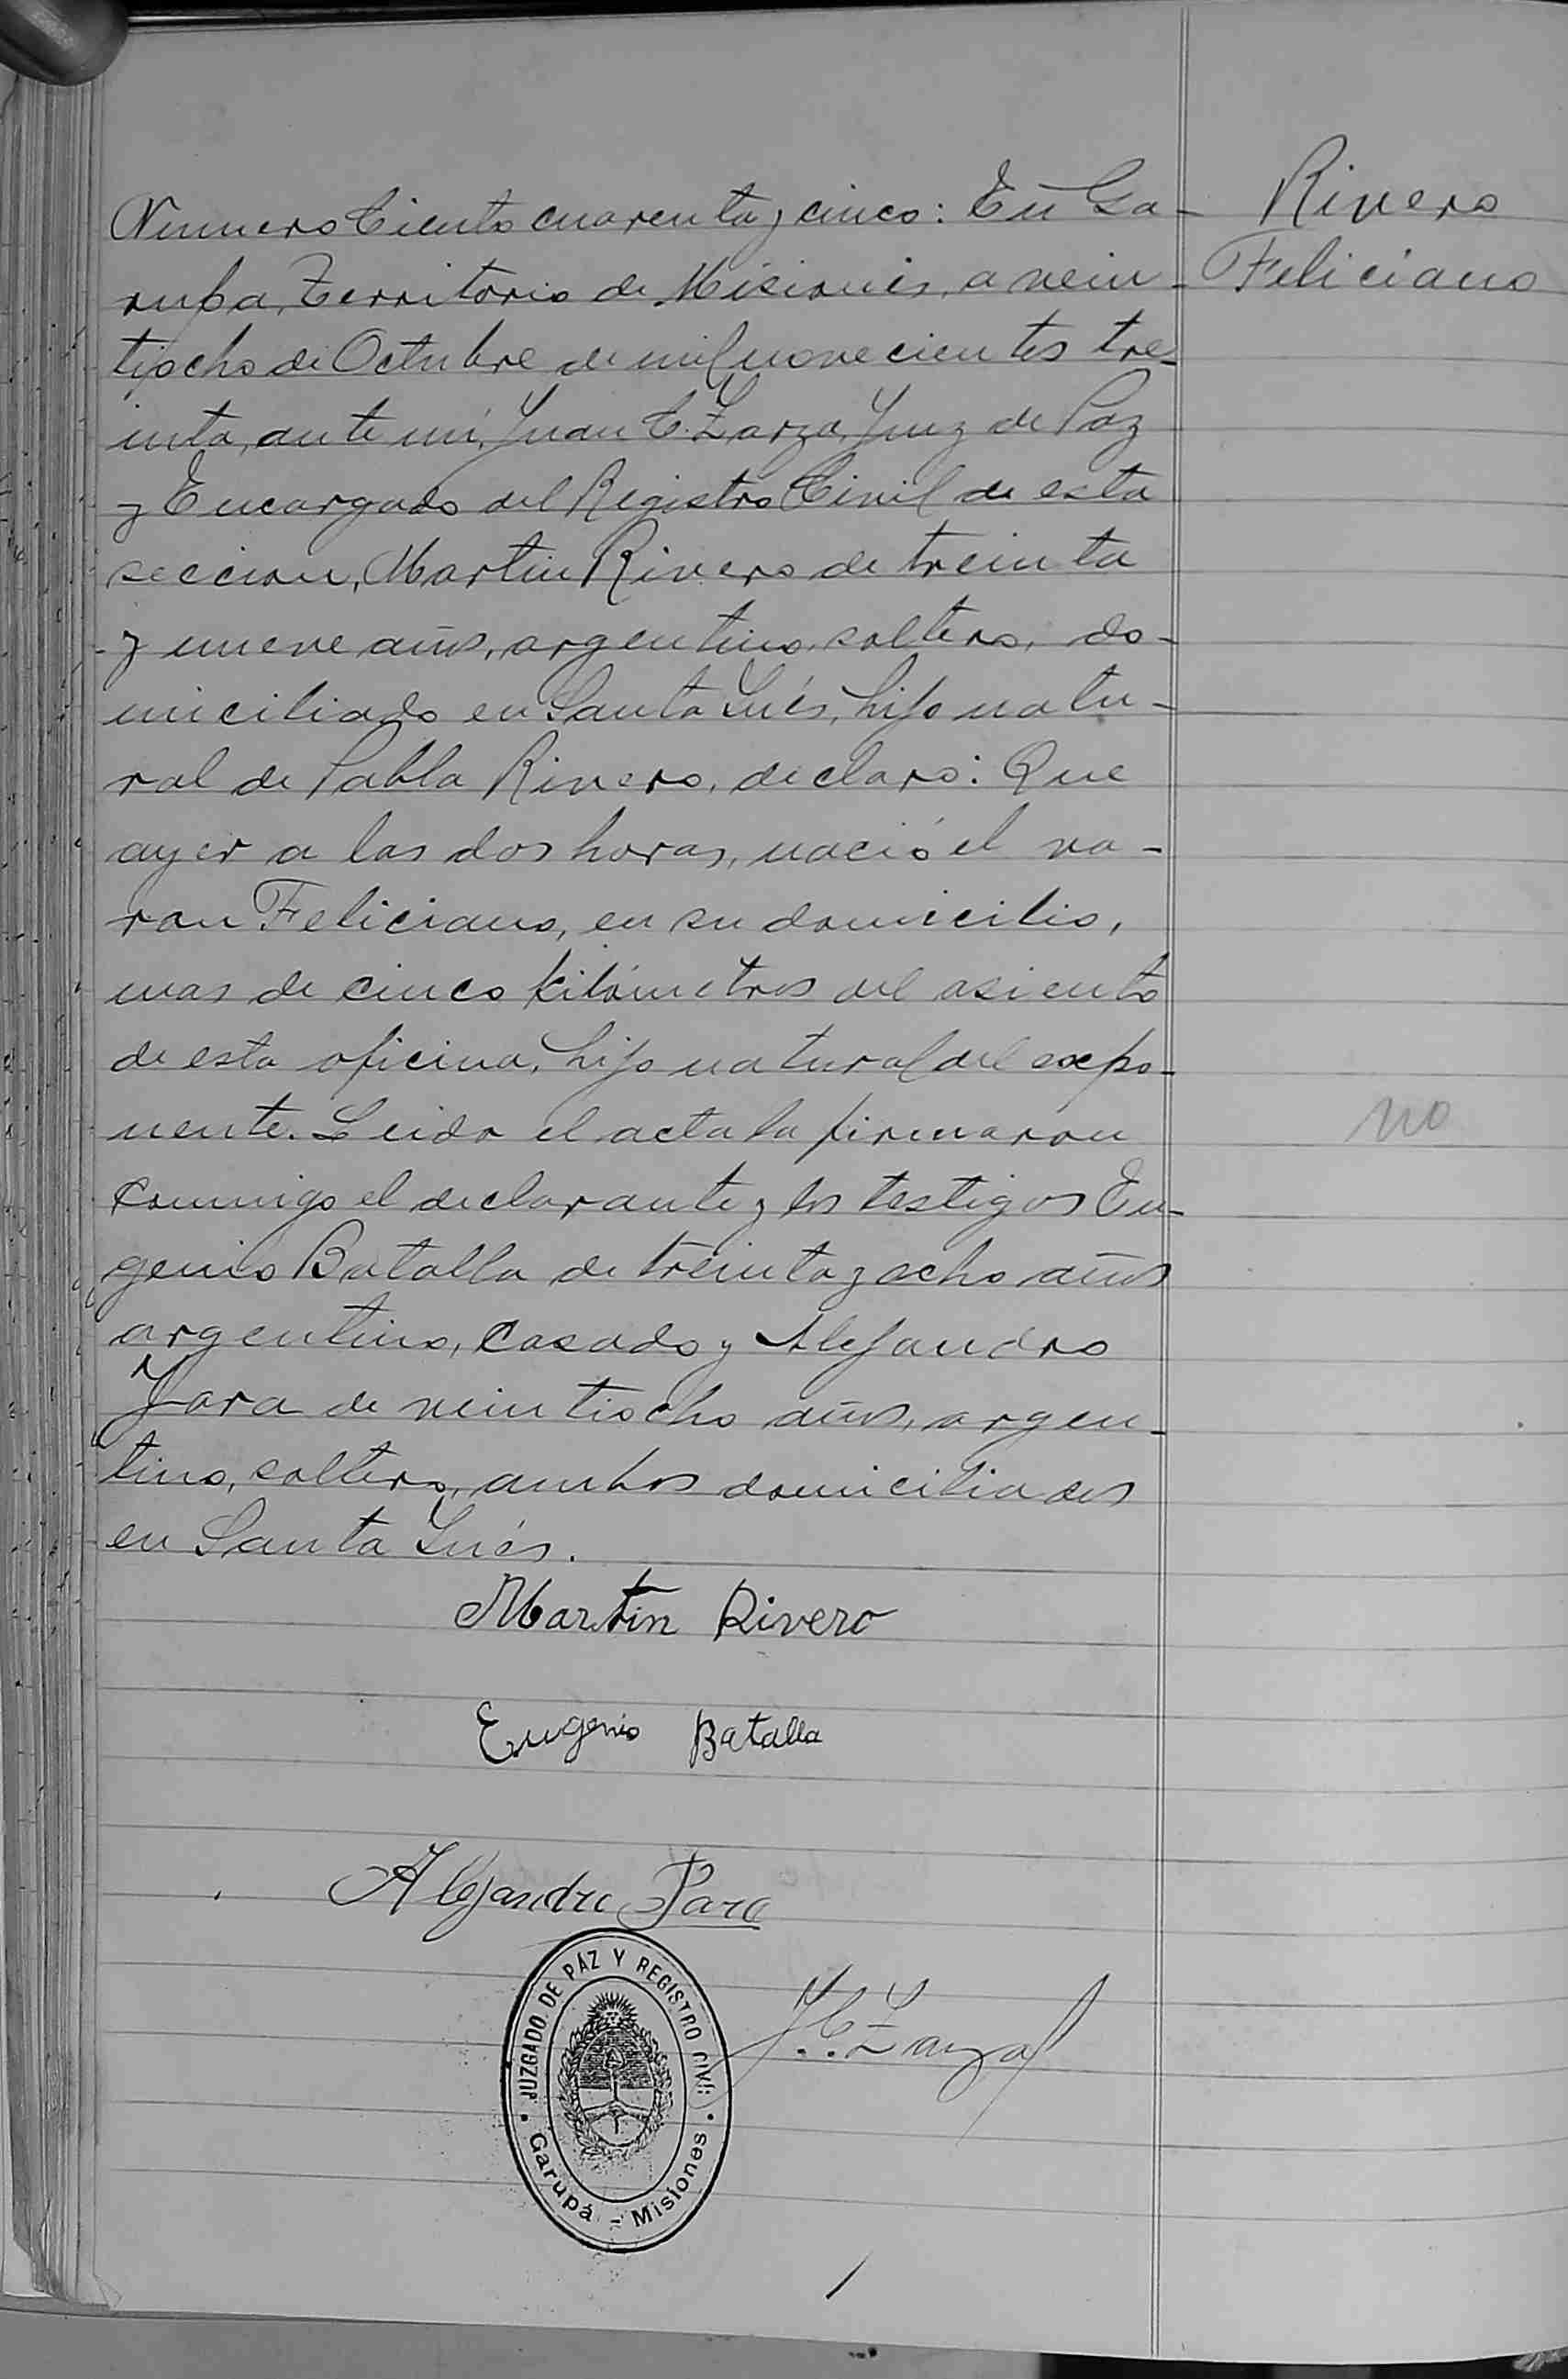 Numero Ciento cuarenta y cinco: En Ga-
rupa, Territorio de Misiones, a vein-
tiocho de Octubre de mil novecientos tre-
inta, ante mi, Juan C. Zarza, Juez de Paz
y Encargado del Registro Civil de esta
seccion, Martin Rivero de treinta
y nueve años, argentino, soltero, do-
miciliado en Santa Inés, hijo natu-
ral de Pabla Rivero, declaro: Que
ayer a las dos horas, nació el va-
ron Feliciano, en su domicilio,
mas de cinco kilómetros del asiento
de esta oficina, hijo natural del expo-
nente. Leida el acta la firmaron
conmigo el declarante y los testigos Eu-
genio Batalla de treinta y ocho años
argentino, casado y Alejandro
Jara de veintiocho años, argen-
tino, soltero, ambos domiciliados
en Santa Inés.
Rivero
Feliciano
no
Martin Rivero
Eugenio Batalla
Alejandro Jara
J. C. Zarza
JUZGADO DE PAZ Y REGISTRO CIVIL
Garupá - Misiones